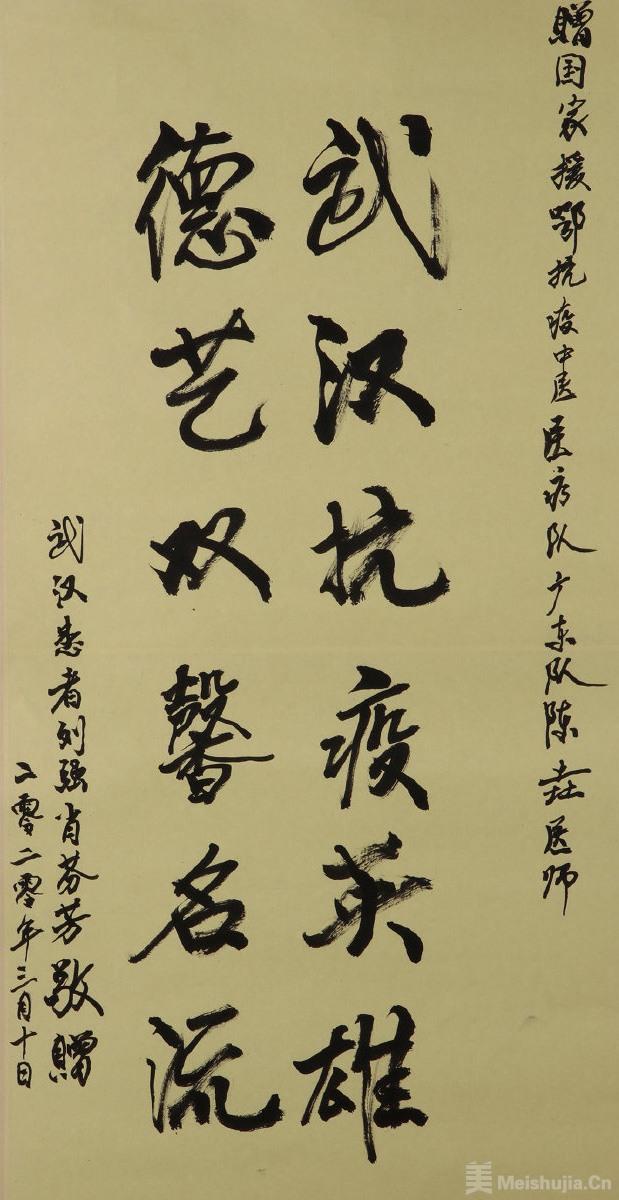 赠国家援鄂抗疫中医医疗队广东队陈垚医师
武汉抗疫英雄
德艺双馨名流
武汉患者列强肖芬芳敬赠
二零二零年三月十日
美 Meishujia.Cn